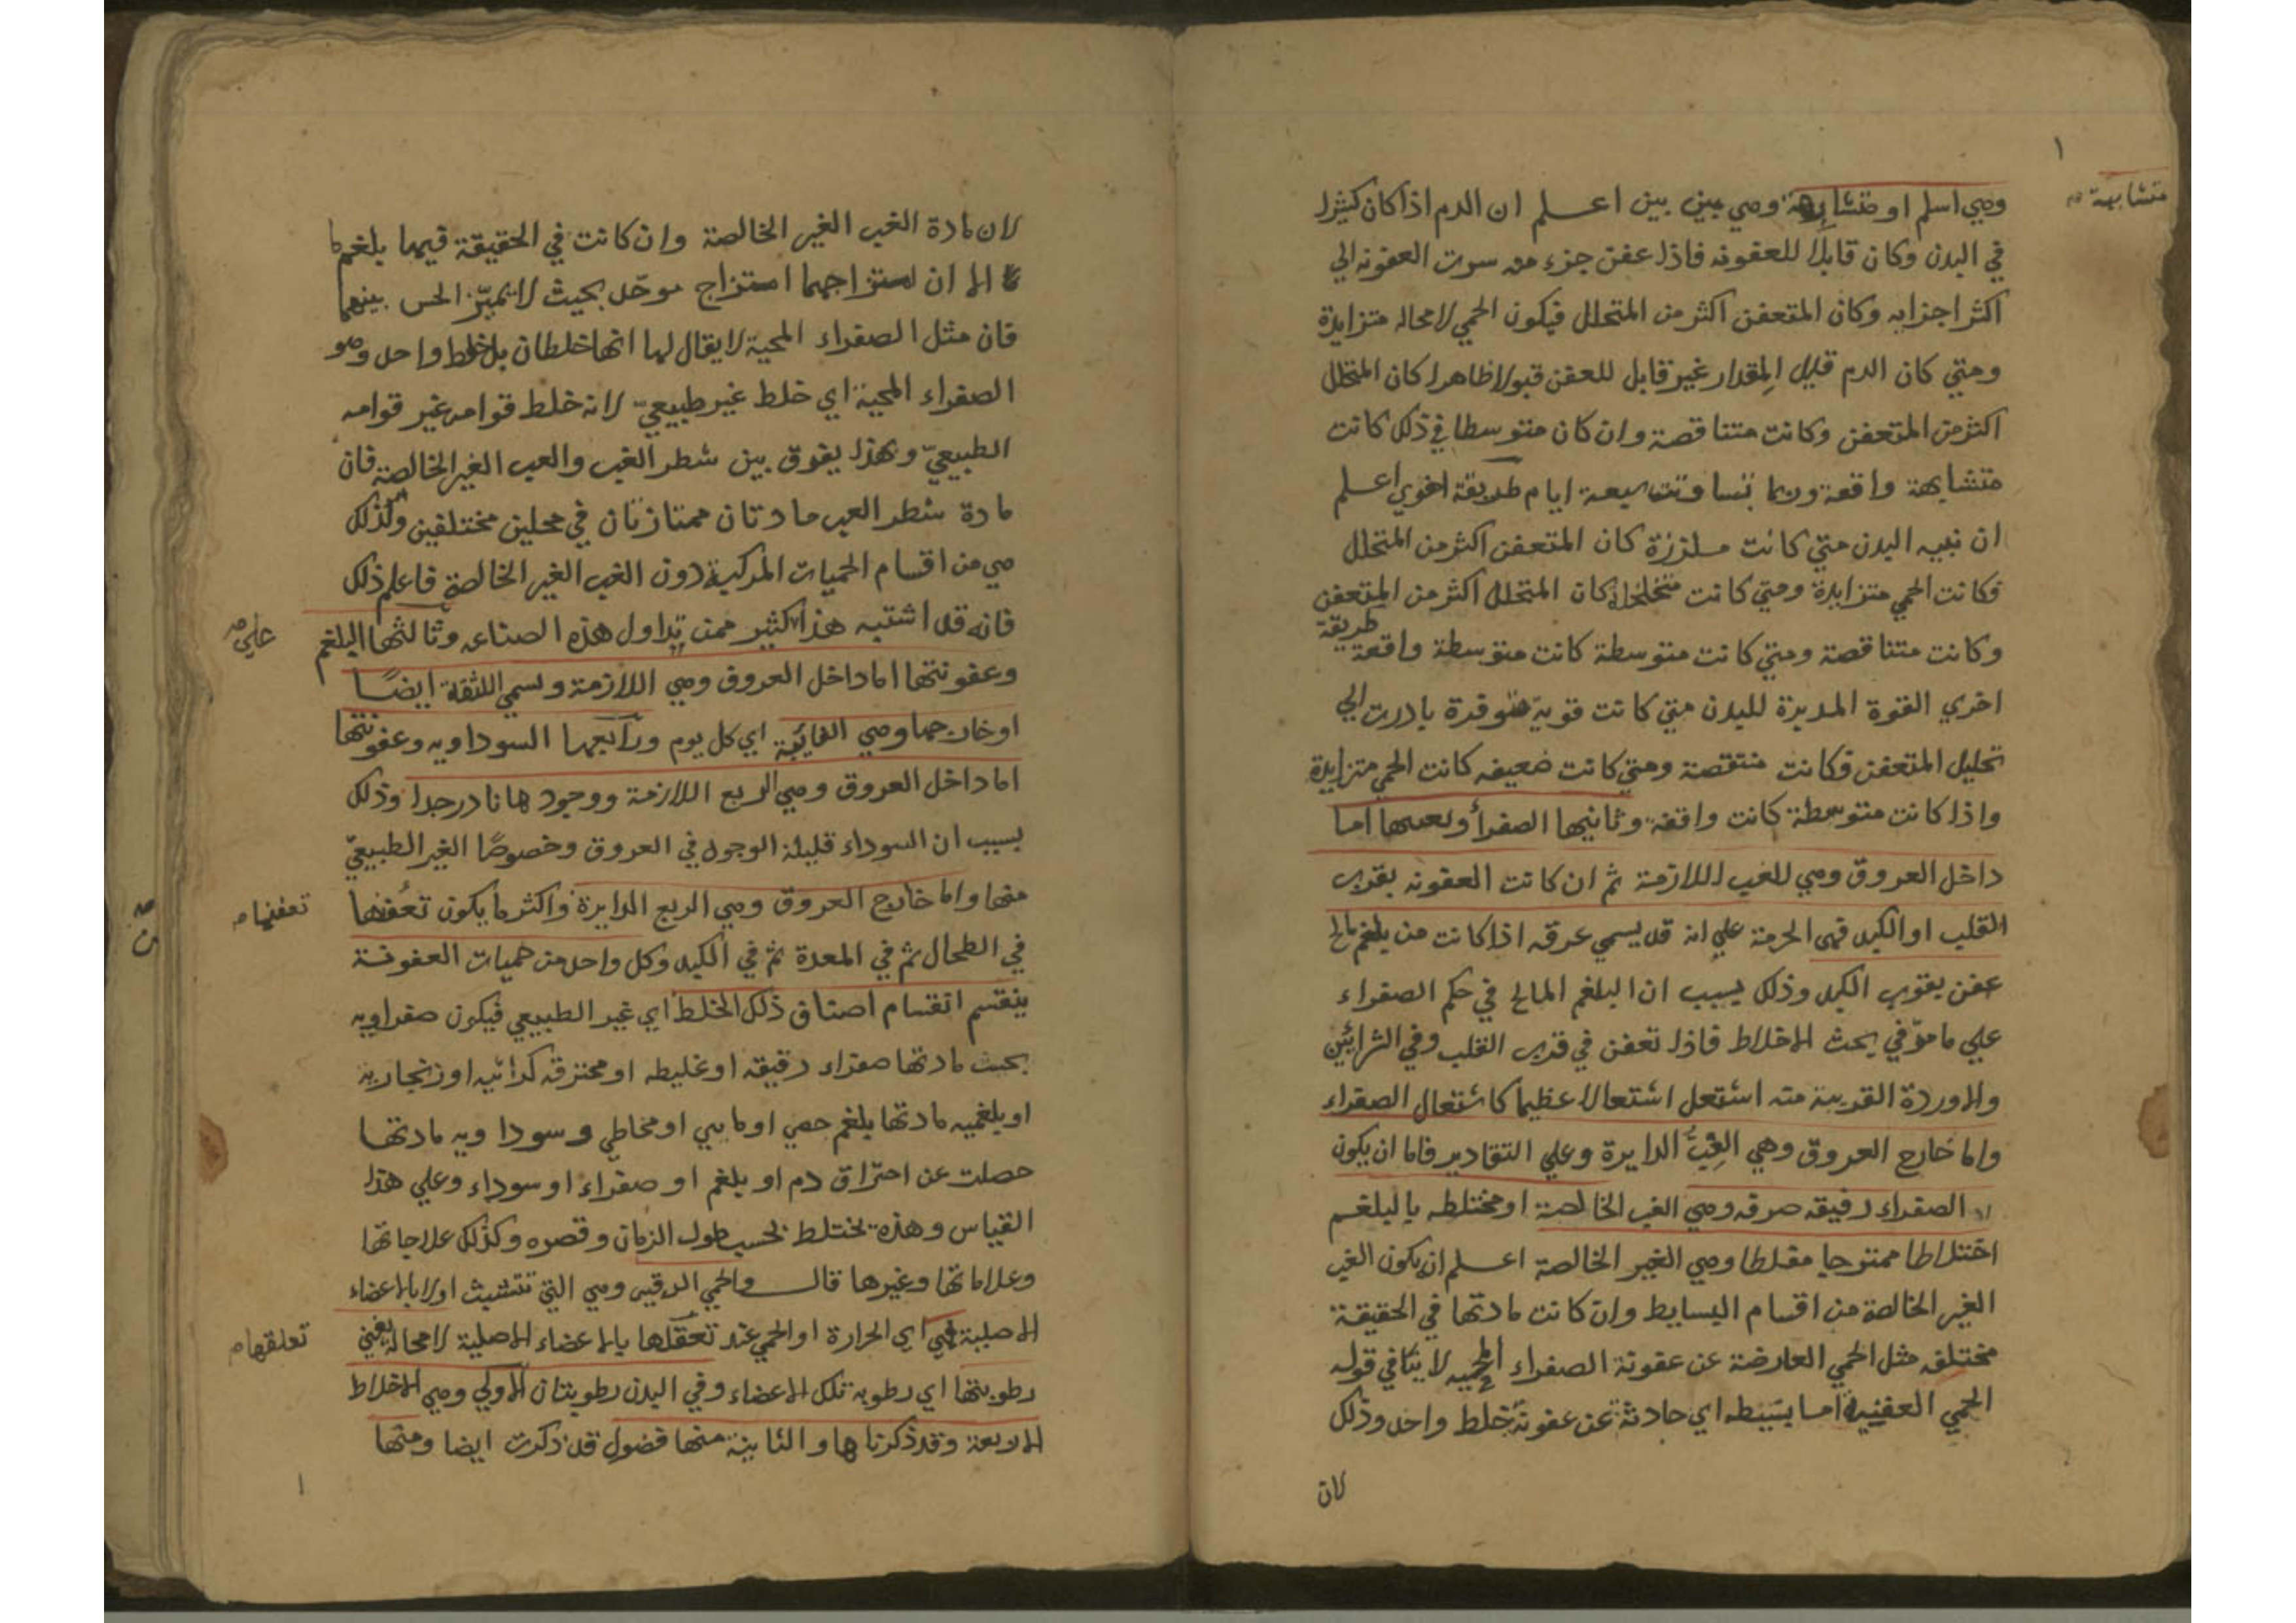 وهي اسلم او متشابهة وهي بين بين اعلم ان الدم اذا كان كثيرا
متشابهة
في البدن وكان قابلا للعفونه فاذا عفن جزء منه سرت العفونه الي
اكثر اجزايه وكان المتعفن اكثر من المتحلل فيكون الحمي لا محاله متزايدة
ومتي كان الدم قليل المقدار غير قابل للعفن قبولا ظاهرا كان المتحلل
اكثر من المتعفن وكانت متناقصة وان كان متوسطا في ذلك كانت
متشابهة واقعة وربما تساوت سبعة ايام طريقة اخري اعلم
ان بنيه البدن متي كانت ملززة كان المتعفن اكثر من المتحلل
فكانت الحمي متزايدة ومتي كانت متخلخلة كان المتحلل اكثر من المتعفن
وكانت متناقصة ومتي كانت متوسطة كانت متوسطة واقعة طريقة
اخري القوة المدبرة للبدن متي كانت قوية متوقدة بادرت الي
تحليل المتعفن فكانت منتقصة ومتي كانت ضعيفه كانت الحمي متزايدة
واذا كانت متوسطة كانت واقفة وثانيها الصفرأ وتعفنها اما
داخل العروق وهي للغب اللازمة ثم ان كانت العفونه بقرب
القلب او الكبد فهي المحرقة علي انه قد يسمي محرقه اذا كانت من بلغم مالح
عفن بقرب الكبد وذلك بسبب ان البلغم المالح في حكم الصفراء
علي ما مرّ في بحث الاخلاط فاذا تعفن في قرب القلب وفي الشرائين
والاوردة القريبة منه اشتعل اشتعالا عظيما كاشتعال الصفراء
واما خارج العروق وهي الغِبّ الدايرة وعلي التقادير فاما ان يكون
الصفراء رقيقه صرفه وهي الغب الخالصة او مختلطه بالبلغم
اختلاطا ممتزجا مغلطا وهي الغير الخالصة اعلم ان يكون الغب
الغير الخالصة من اقسام البسايط وان كانت مادتها في الحقيقة
مختلفه مثل الحمي العارضة عن عفونة الصفراء المحيه لا ينافي قوله
الحمي العفنية اما بسيطه اي حادثة عن عفونة خلط واحد وذلك
لان
لان مادة الغب الغير الخالصة وان كانت في الحقيقة قيما بلغم
الا ان امتزاجهما امتزاج موحّد بحيث لا يميّز الحس بينهما
فان مثل الصفراء المحية لا يقال لها انها خلطان بل خلط واحد وهو
الصفراء المحية اي خلط غير طبيعيّ لانه خلط قوامه غير قوامه
الطبيعيّ وبهذا يفرق بين شطر الغب والغب الغير الخالصة فان
مادة شطر الغب مادتان ممتازتان في محلين مختلفين ولذلك
هي من اقسام الحميات المركبة دون الغب الغير الخالصة فاعلم ذلك
فانه قد اشتبه هذا الكثير ممن تداول هذه الصناعه وثالثها البلغم
علي
وعفونتها اما داخل العروق وهي اللازمة وتسمي اللثقة ايضًا
او خارجها وهي النائبة اي كل يوم ورابعها السوداويه وعفونتها
اما داخل العروق وهي الربع اللازمة ووجودها نادر جدا وذلك
بسبب ان السوداء قليلة الوجود في العروق وخصوصًا الغير الطبيعيّ
منها واما خارج العروق وهي الربع الدايرة واكثر ما يكون تعفنها
تعفنها
في الطحال ثم في المعدة ثم في الكبد وكل واحد من حميات العفونة
ينقسم انقسام اصناف ذلك الخلط اي غير الطبيعي فيكون صفراويه
بحسب مادتها صفراء رقيقه او غليطه او محترقه كراثيه او زنجاريه
او بلغميه مادتها بلغم جصي او مايي او مخاطي وسوداويه مادتها
حصلت عن احتراق دم او بلغم او صفراء او سوداء وعلي هذا
القياس وهذه تختلط بحسب طول الزمان وقصره وكذلك علاجاتها
وعلاماتها وغيرها قال والحمي الدقيه وهي التي تتشبث اولا بالاعضاء
الاصلية فهي اي الحرارة او الحمي عند تعقلها بالاعضاء الاصلية لا محالة يفني
تعلقها
رطوبتها اي رطوبة تلك الاعضاء وفي البدن رطوبتان الاولي وهي الاخلاط
الاربعة وقد ذكرناها والثانية منها فضول قد ذكرت ايضا ومنها